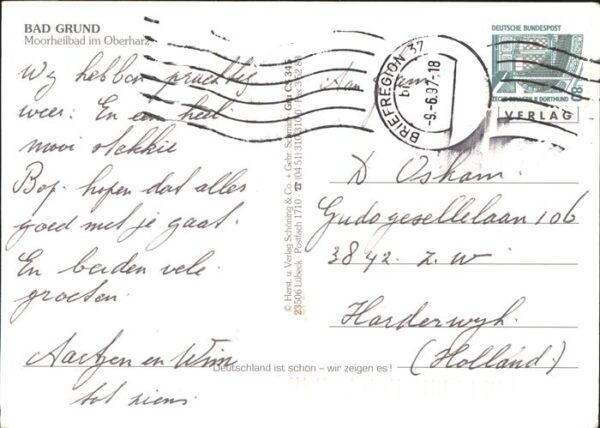 BAD GRUND
Moorheilbad im Oberharz
Wij hebben prachtig
weer. En een heel
mooi stekkie
Bop. hopen dat alles
goed met je gaat.
En beiden vele
groeten.
Aartjen en Wim
tot ziens
© Herst. u. Verlag Schöning & Co. + Gebr. Schmidt
23506 Lübeck · Postfach 1710 · ☎ (04 51) 310310
Deutschland ist schön – wir zeigen es!
BRIEFREGION 37
-9.-6.97-18
DEUTSCHE BUNDESPOST
80
VERLAG
Aan
D Osham
Gudogesellelaan 106
3842. Z.W
Harderwijk.
(Holland.)